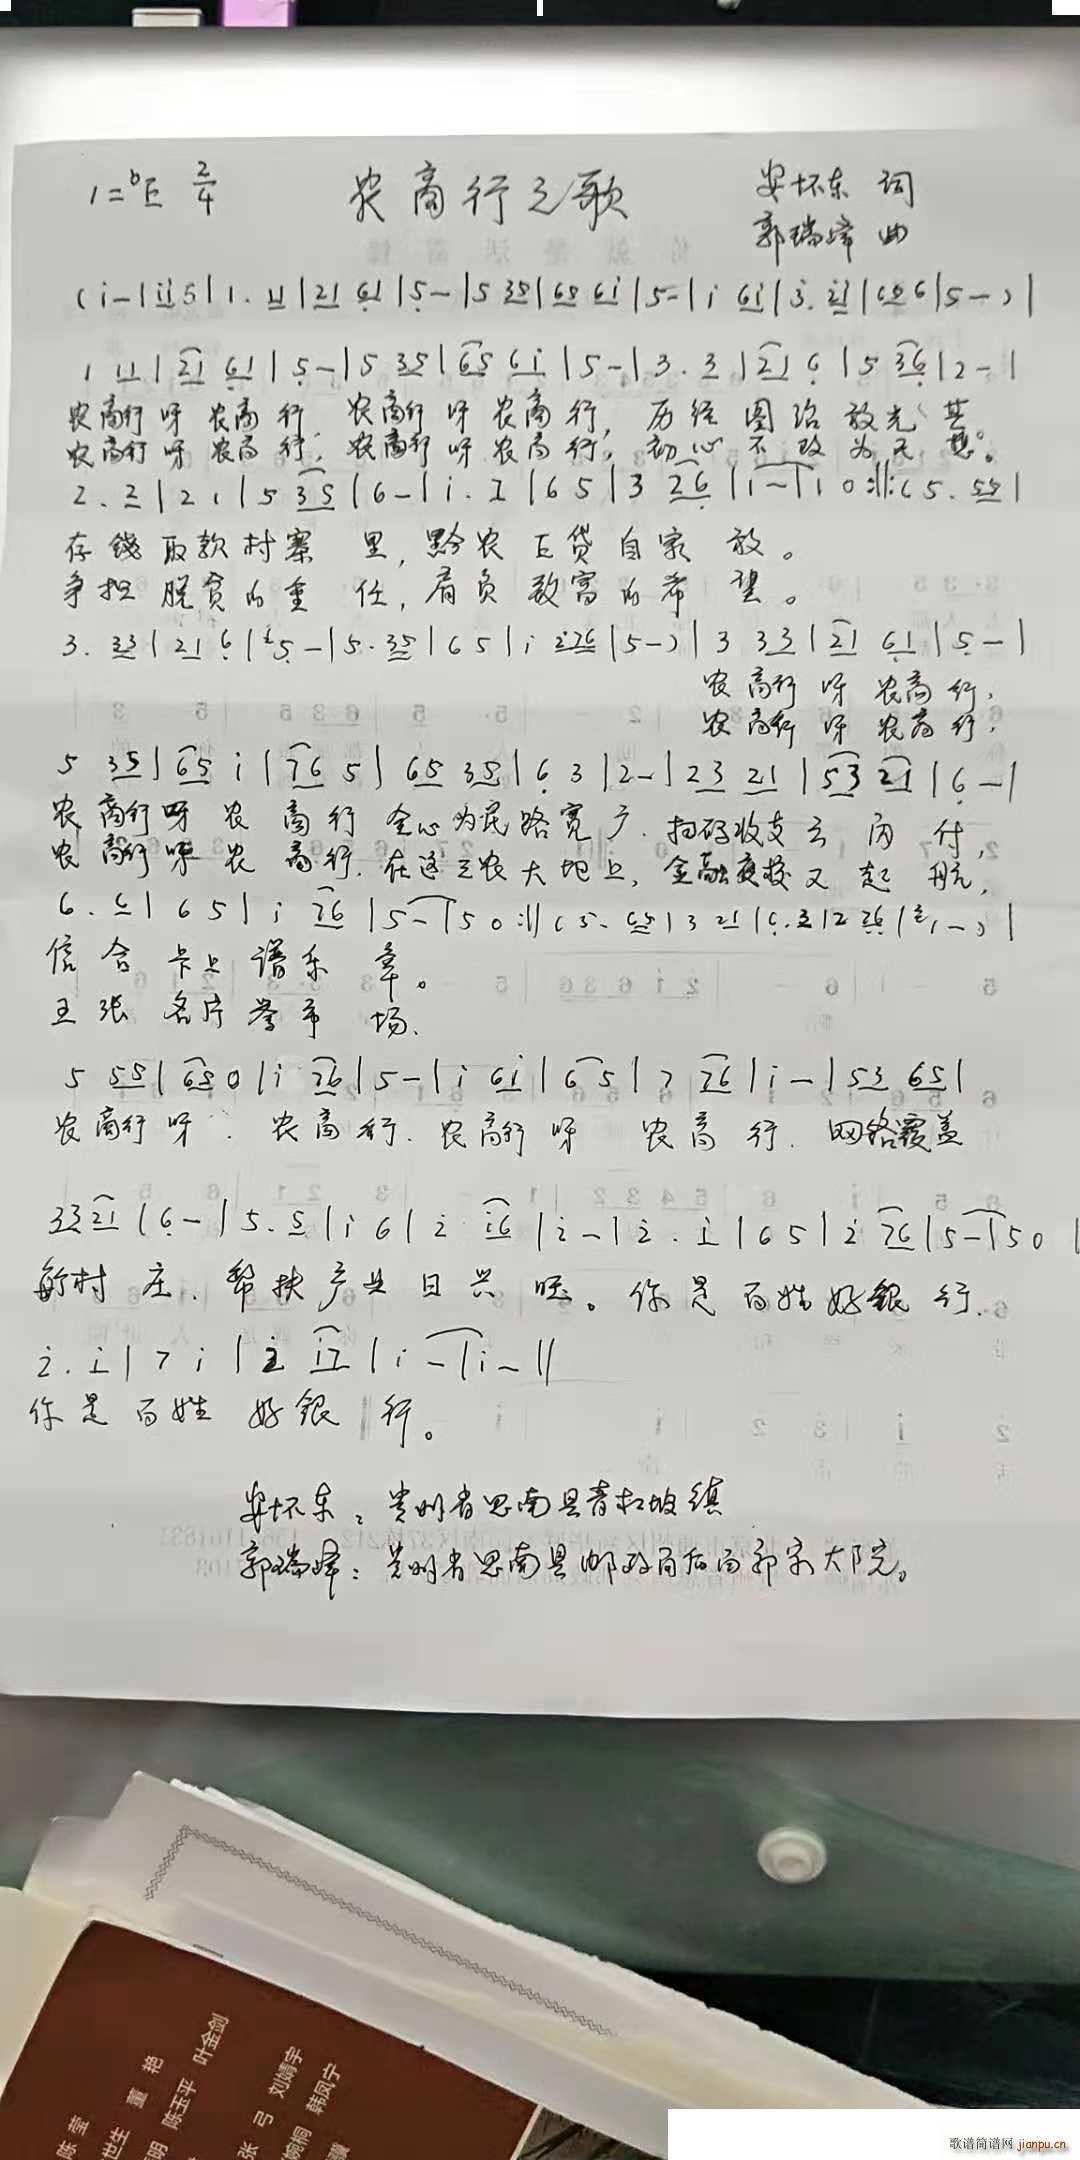 1=ᵇE 2/4 农商行之歌 安怀东 词
郭瑞峰 曲
(i-|ii5|1. 11|21 61|5-|5 35|65 6i|5-|i 6i|3. 2i|656|5-)|
1 11|21 61|5-|5 35|65 6i|5-|3. 3|21 6|5 36|2-|
农商行呀农商行,农商行呀农商行,历经图治放光
农商行呀农商行,农商行呀农商行,初心不改为民想。
2. 2|21|5 35|6-|i. i|65|3 26|1-|10:||:(5. 55|
存钱取款村寨里,黔农E贷自家放。
争担脱贫的重任,肩负致富的希望。
3. 33|21 6|5-|5. 35|65|i i76|5-)|3 33|21 61|5-|
农商行呀农商行,
农商行呀农商行,
5 35|65 i|76 5|65 35|63|2-|23 21|53 21|6-|
农商行呀农商行 全心为民路宽广.扫码收支云闪付,
农商行呀农商行.在这三农大地上,金融夜校又起航,
6. 6|65|i 76|5-|50:||(5. 65|3 21|6. 3|2 26|1-)|
信合卡上谱乐章。
五张名片誉市场.
5 55|650|i 76|5-|i 6i|65|7 76|i-|53 65|
农商行呀.农商行.农商行呀 农商行.网络覆盖
33 21|6-|5. 5|i6|2 i6|2-|2. i|65|2 76|5-|50|
新村庄.帮扶产业日兴旺。你是百姓好银行.
2. i|7i|2 i7|i-|i-||
你是百姓好银行。
安怀东:贵州省思南县青杠坡镇
郭瑞峰:贵州省思南县邮政局后面郭家大院。
叶金剑
陈玉平
董艳
陈莹
刘靖宇
韩凤宁
张弓
歌谱简谱网 jianpu.cn